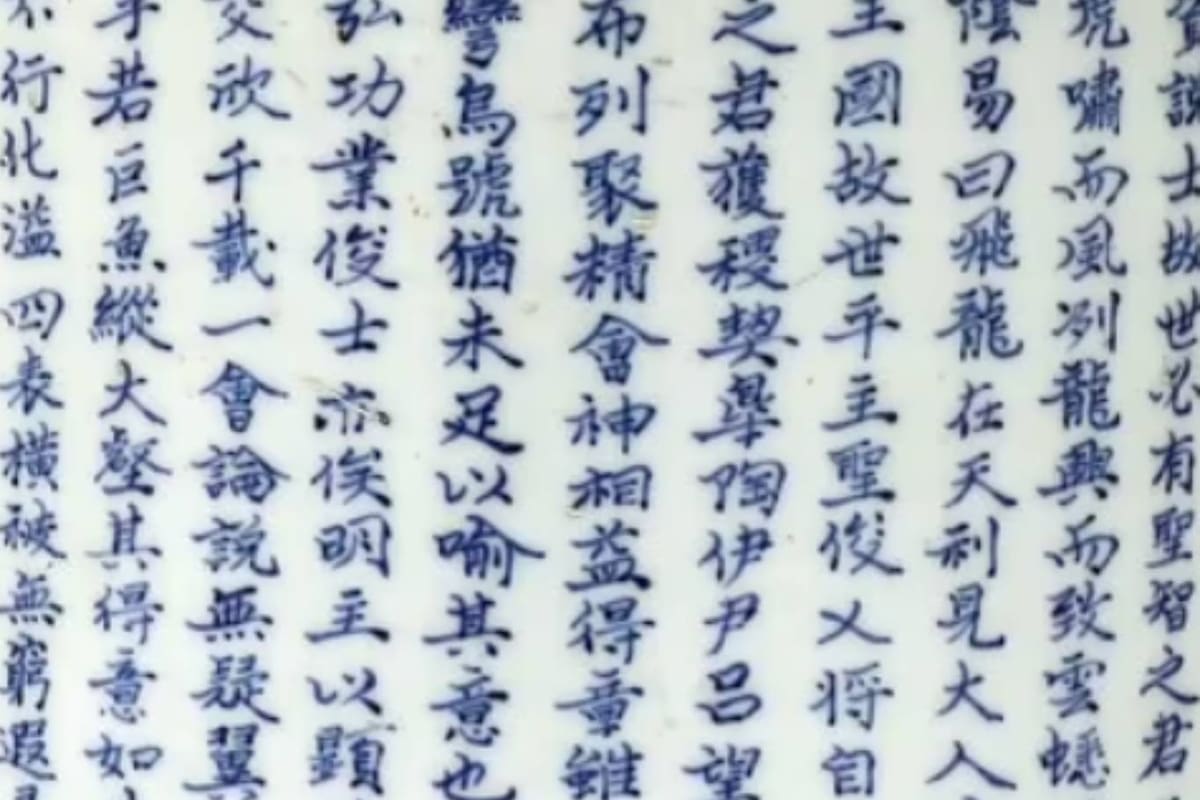 資說士故世必有聖智之君
虎嘯而風冽龍興而致雲蟋
陰易曰飛龍在天利見大人
王國故世平主聖俊乂將自
之君獲稷契臯陶伊尹呂望
布列聚精會神相益得章雖
彎烏號猶未足以喻其意也
弘功業俊士亦俟明主以顯
交欣千載一會論說無疑翼
乎若巨魚縱大壑其得意如
不行化溢四表橫被無窮遐